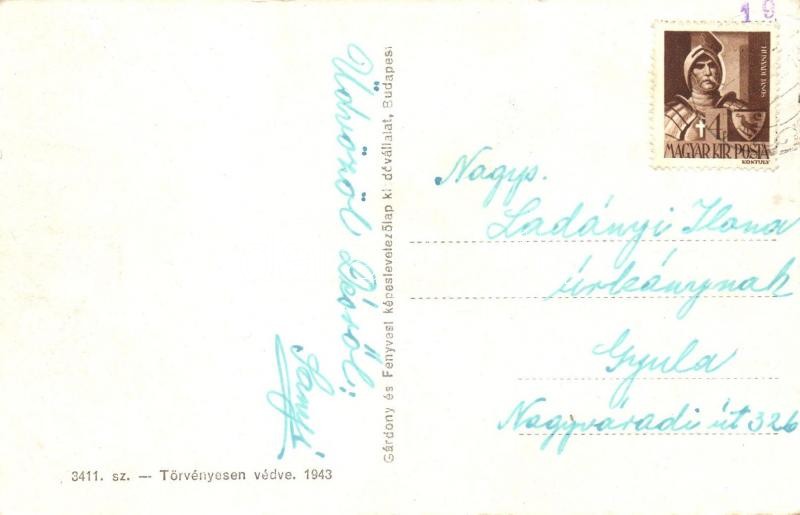 19
HUNYADI JÁNOS
4f
MAGYAR KIR POSTA
KONTULY
Üdvözöl Désről;
Gárdony és Fenyvesi képeslevelezőlap kiadóvállalat, Budapest
Nagys.
Ladányi Ilona
úrleánynak
Gyula
Nagyváradi út 326
3411. sz. — Törvényesen védve. 1943